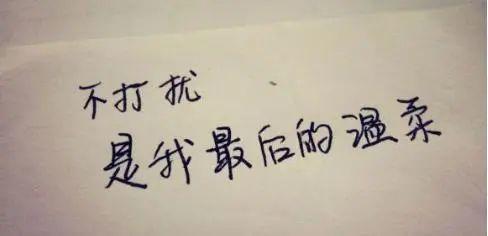 不打扰
是我最后的温柔